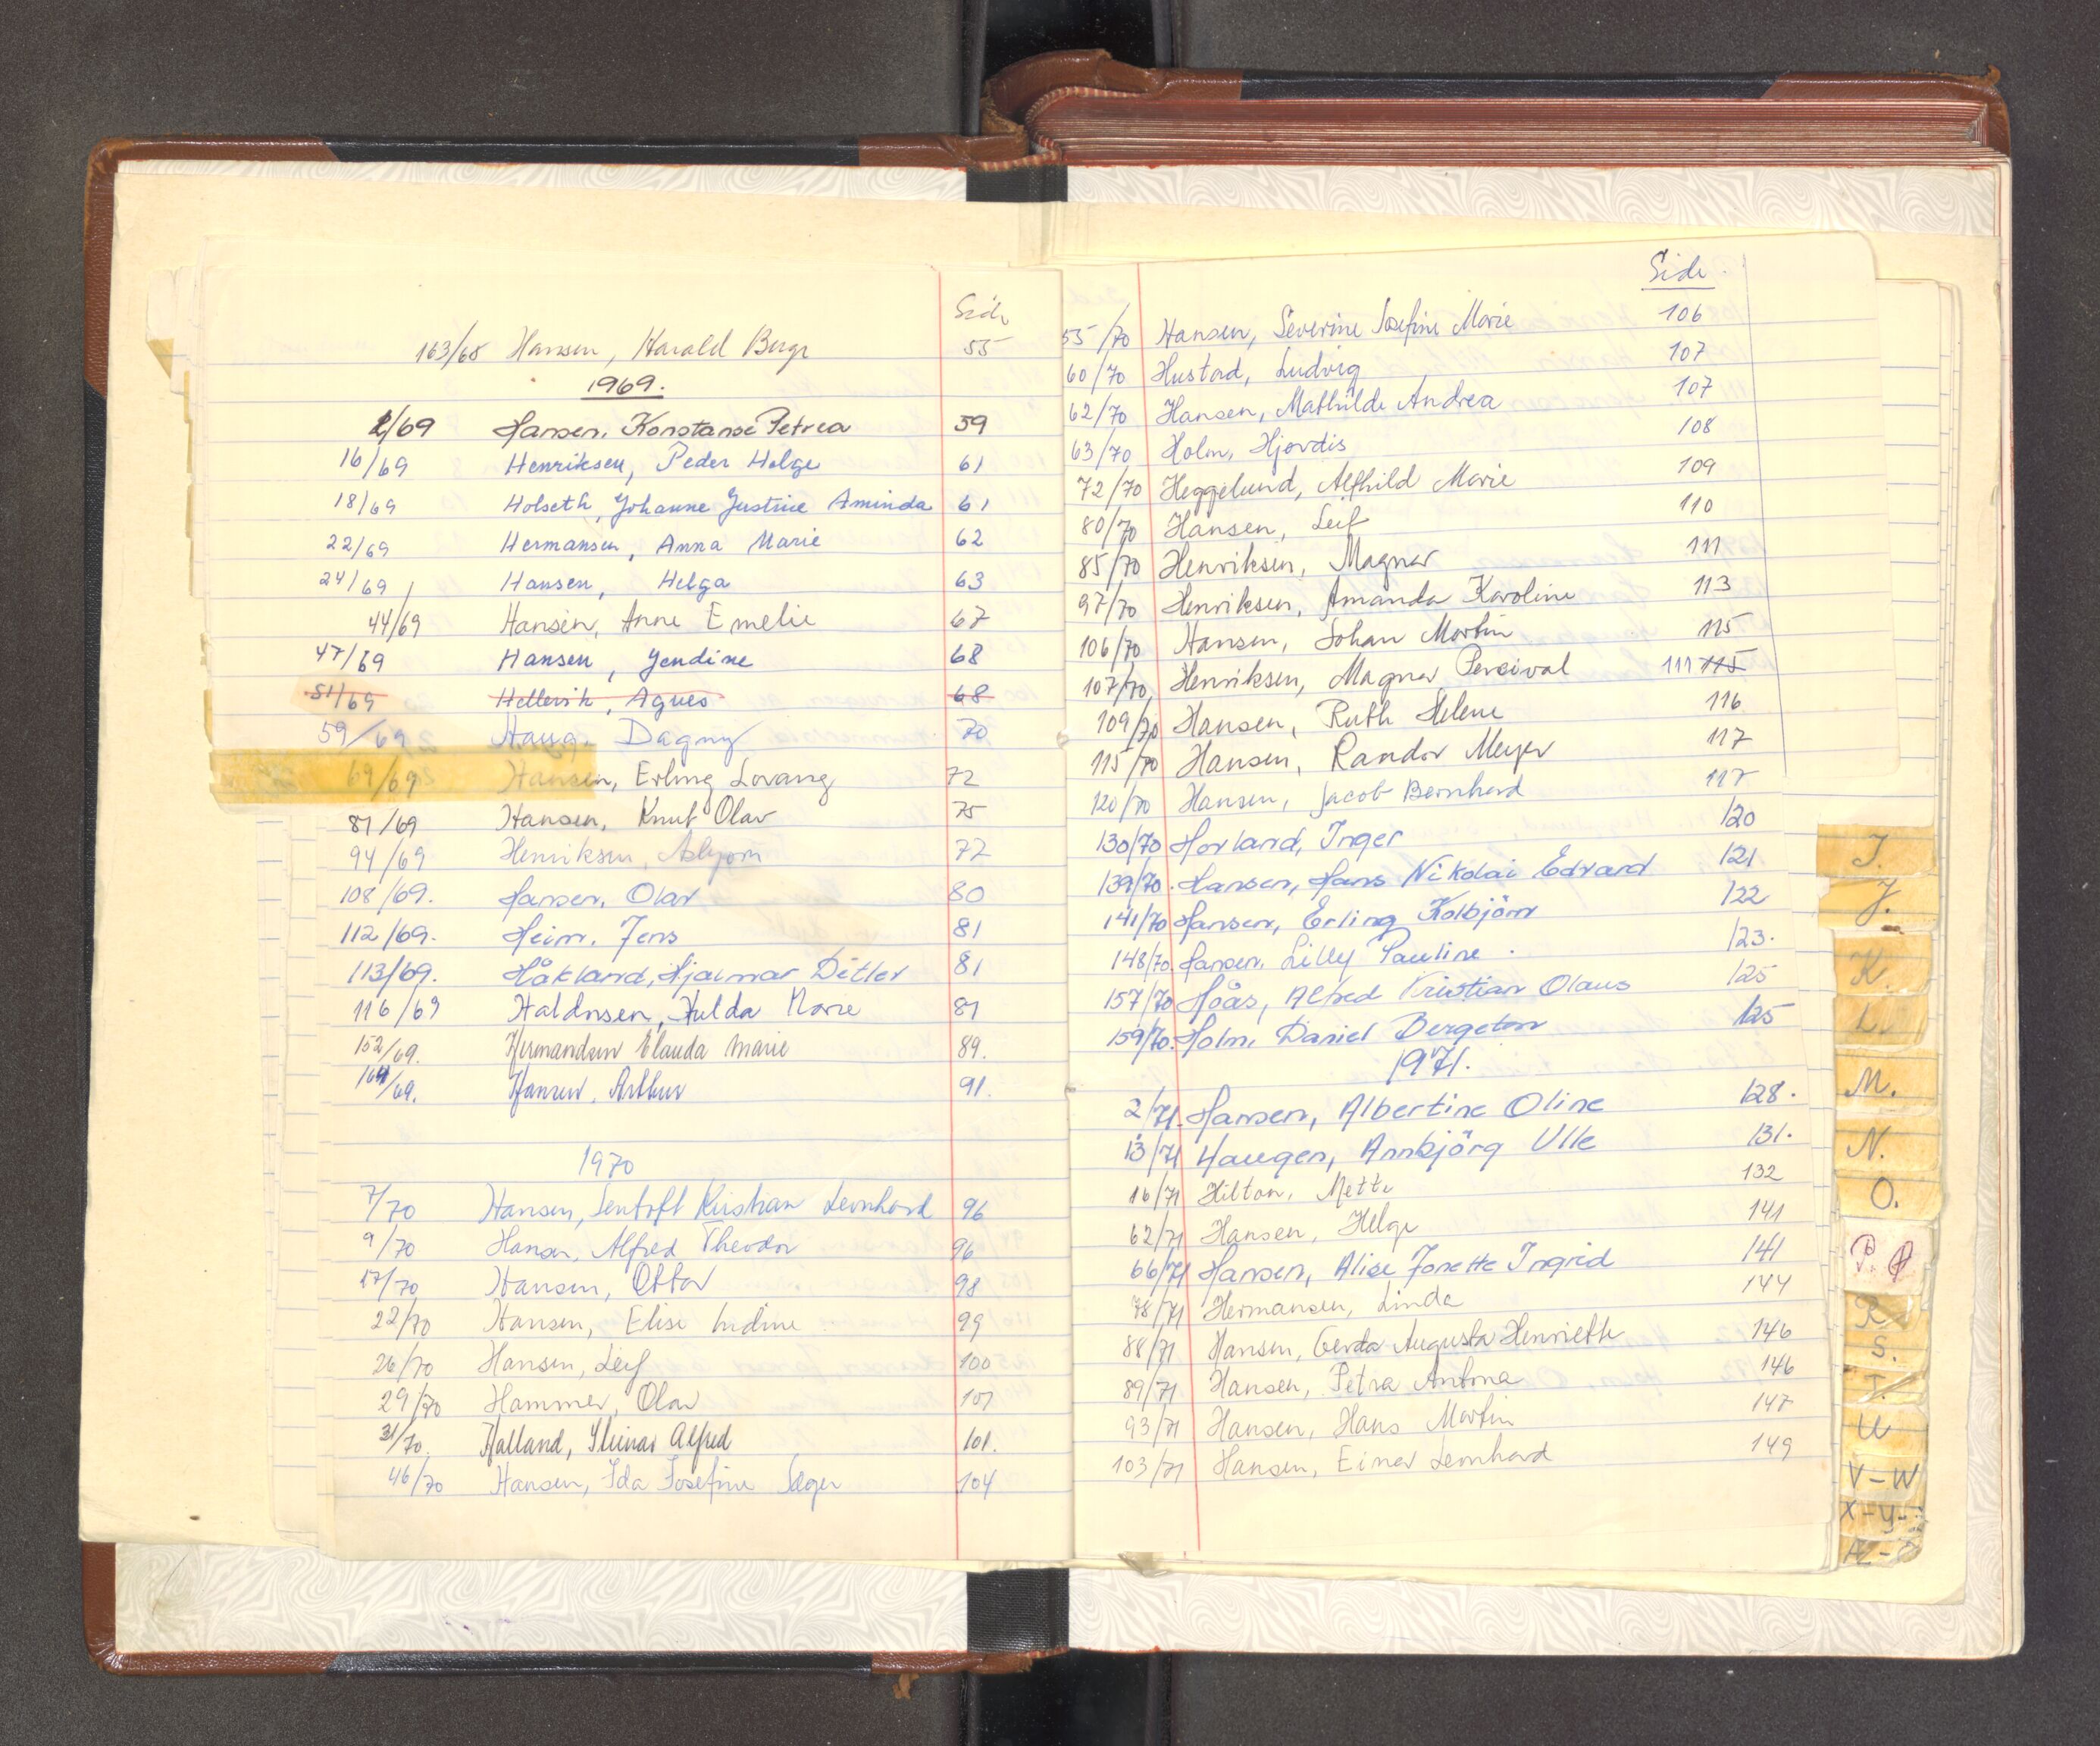 Side
163/68 Hansen, Harald Berge 55
1969.
2/69 Hansen, Konstanse Petrea 59
16/69 Henriksen, Peder Helge 61
18/69 Holseth, Johanne Justine Aminda 61
22/69 Hermansen, Anna Marie 62
24/69 Hansen, Helga 63
44/69 Hansen, Anne Emelie 67
47/69 Hansen, Jendine 68
51/69 Hellevik, Agnes 68
59/69 Haug, Dagny 70
69/69 Hansen, Erling Lovang 72
81/69 Hansen, Knut Olav 75
94/69 Henriksen, Asbjørn 77
108/69. Hansen, Olav 80
112/69. Heim, Jens 81
113/69. Håkland, Hjalmar Ditlev 81
116/69 Haldorsen, Hulda Marie 81
152/69. Hermandsen Klauda Marie 89.
164/69. Hansen, Arthur 91.
1970
7/70 Hansen, Kristian Leonhard 96
9/70 Hansen, Alfred Theodor 96
17/70 Hansen, Ottar 98
22/70 Hansen, Elise Ludine 99
26/70 Hansen, Leif 100
29/70 Hammer, Olav 101
31/70. Halland, Steinar Alfred 101.
46/70 Hansen, Ida Josefine Jæger 104
Side
55/70 Hansen, Severine Josefine Marie 106
60/70 Hustad, Ludvig 107
62/70 Hansen, Mathilde Andrea 107
63/70 Holm, Hjørdis 108
72/70 Heggelund, Alfhild Marie 109
80/70 Hansen, Leif 110
85/70 Henriksen, Magnar 111
97/70 Henriksen, Amanda Karoline 113
106/70 Hansen, Johan Martin 115
107/70 Henriksen, Magnar Percival 111 115
109/70 Hansen, Ruth Helene 116
115/70 Hansen, Randor Meyer 117
120/70 Hansen, Jacob Bernhard 117
130/70 Hovland, Inger 120
139/70. Hansen, Hans Nikolai Edvard 121
141/70 Hansen, Erling Kolbjörn 122
148/70 Hansen, Lilly Pauline. 123.
157/70 Hoås, Alfred Kristian Olaus 125
159/70. Holm, Daniel Bergeton 125
1971.
2/71. Hansen, Albertine Oline 128.
13/71 Haugen, Annbjörg Ulle 131.
16/71 Hilton, Mette 132
62/71 Hansen, Helge 141
66/71 Hansen, Alise Jonette Ingrid 141
78/71 Hermansen, Linda 144
88/71 Hansen, Gerda Augusta Henriette 146
89/71 Hansen, Petra Antona 146
93/71 Hansen, Hans Martin 147
103/71 Hansen, Einar Leonhard 149
I.
J.
K.
L.
M.
N.
O.
P. Q
R
S.
T.
U
V-W
X-Y-Z
Æ-Ø